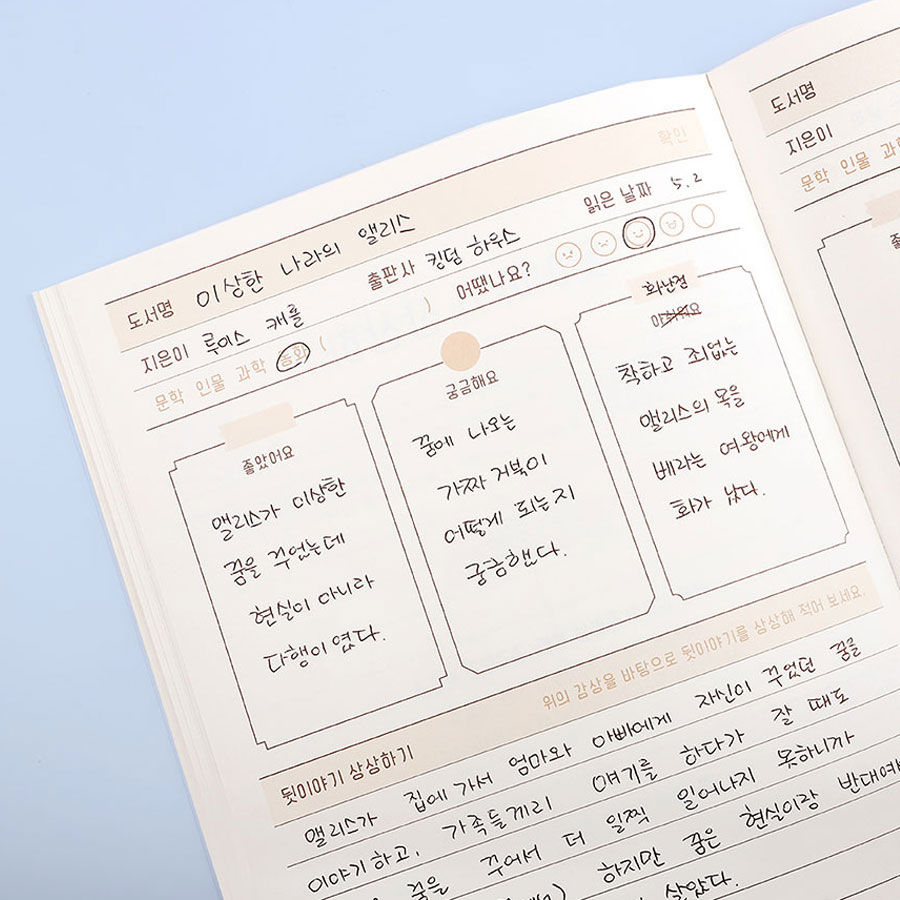 확인
도서명 이상한 나라의 앨리스 읽은 날짜 5.2
지은이 루이스 캐롤 출판사 킹덤 하우스 어땠나요?
문학 인물 과학 동화 ( )
좋았어요
앨리스가 이상한
꿈을 꾸었는데
현실이 아니라
다행이 였다.
궁금해요
꿈에 나오는
가짜 거북이
어떻게 되는지
궁금했다.
화난점
아쉬워요
착하고 죄없는
앨리스의 목을
베라는 여왕에게
화가 났다.
뒷이야기 상상하기 위의 감상을 바탕으로 뒷이야기를 상상해 적어 보세요.
앨리스가 집에 가서 엄마와 아빠에게 자신이 꾸었던 꿈을
이야기 하고, 가족들끼리 얘기를 하다가 잘 때도
꿈을 꾸어서 더 일찍 일어나지 못하니까
하지만 꿈은 현실이랑 반대여
살았다.
도서명
지은이
문학 인물 과학